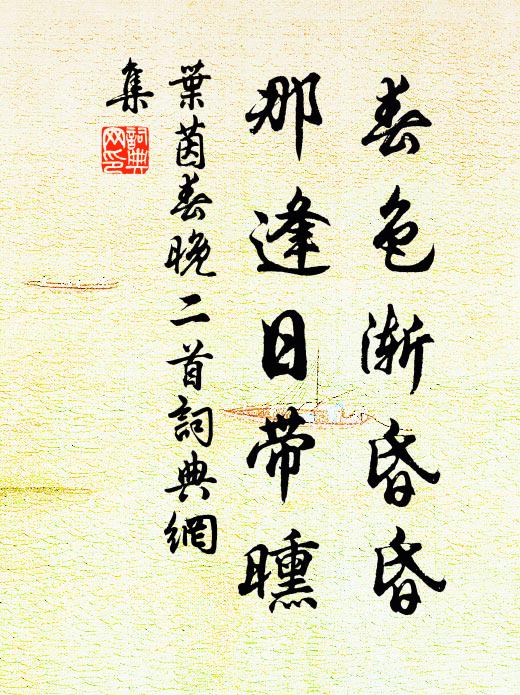 春色渐昏昏
那逢日带曛
葉茵春晚二首詞典網
集
詞典
网印